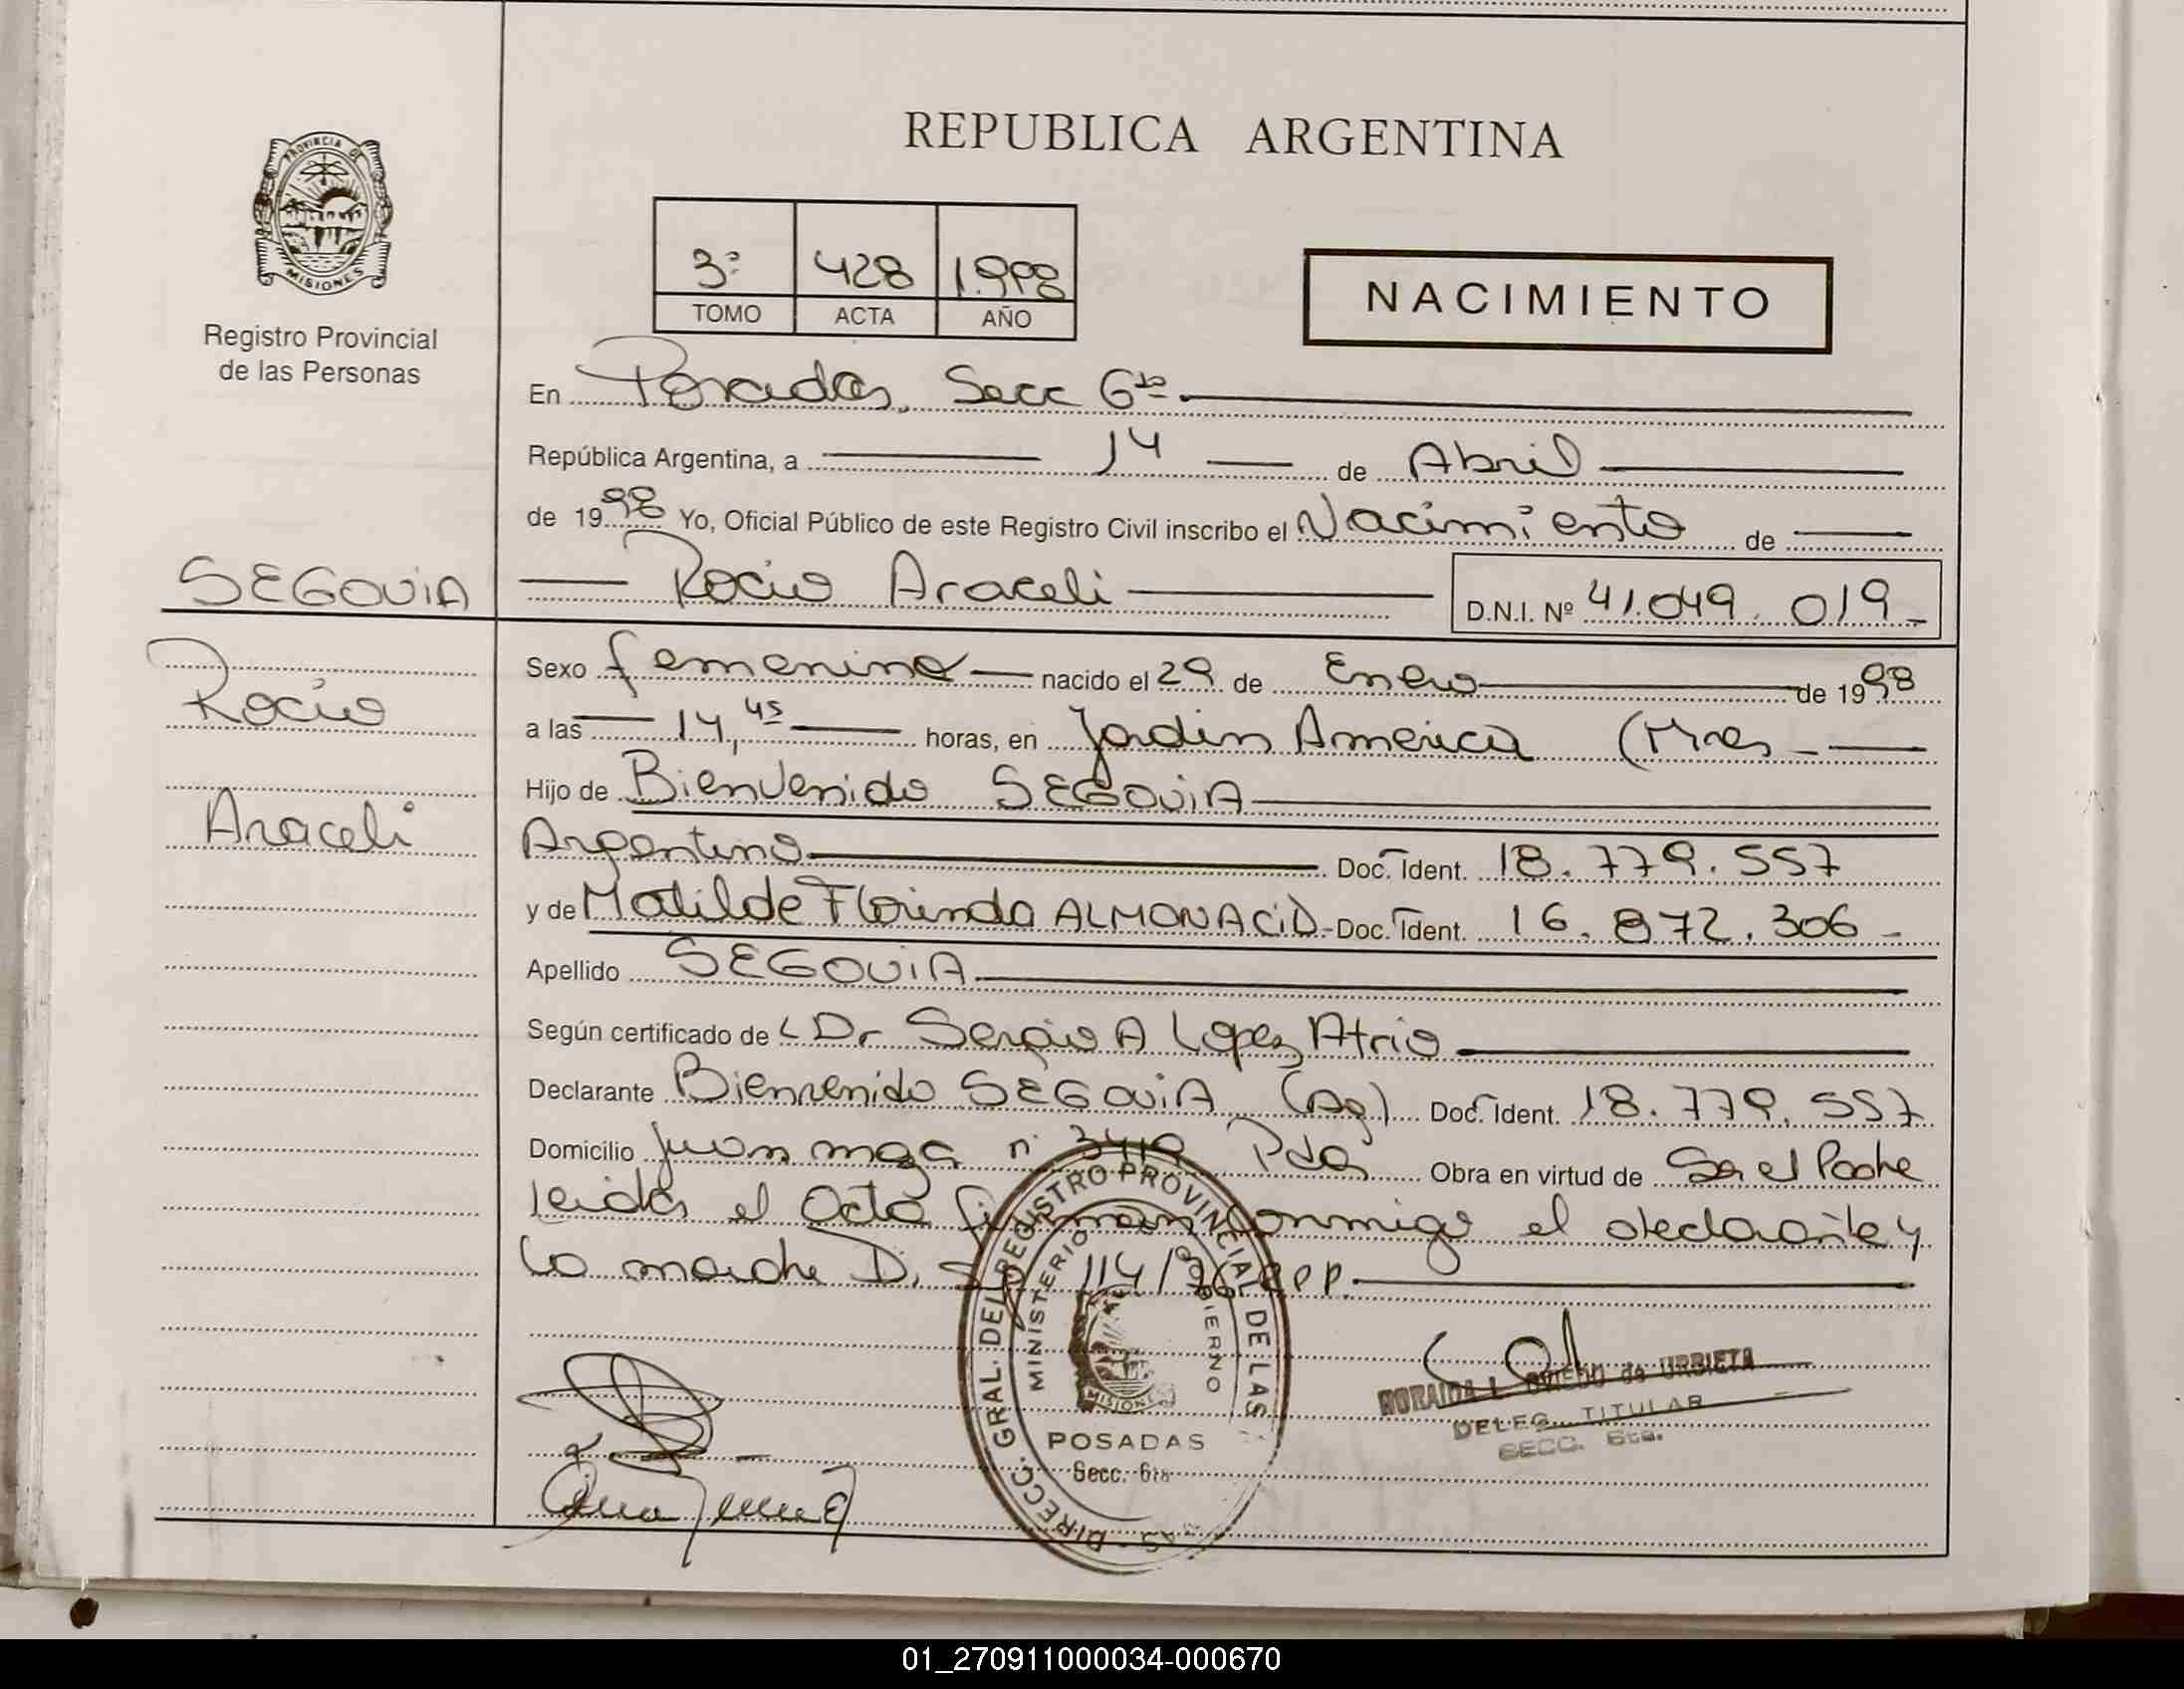 REPUBLICA ARGENTINA
PROVINCIA DE
MISIONES
Registro Provincial
de las Personas
3º 428 1.998
TOMO ACTA AÑO
NACIMIENTO
En Posadas, Secc 6ta.
República Argentina, a 14 de Abril
de 1998 Yo, Oficial Público de este Registro Civil inscribo el Nacimiento de
SEGOVIA
Rocio Araceli D.N.I. Nº 41.049.019-
Rocio
Araceli
Sexo femenino nacido el 29 de Enero de 1998
a las 14,45 horas, en Jardin America (Mnes
Hijo de Bienvenido SEGOVIA
Argentino Doc. Ident. 18.779.557
y de Matilde Florinda ALMONACiD- Doc. Ident. 16.872.306-
Apellido SEGOVIA
Según certificado de Dr Sergio A Lopez Atrio
Declarante Bienvenido SEGOVIA (Ag) Doc. Ident. 18.779.557
Domicilio Juan n: 3419 Pdas Obra en virtud de Ser el Padre
leida el Acta firman conmigo el declarante y
la madre D. 114/96 RPP.
DIRECC. GRAL. DEL REGISTRO PROVINCIAL DE LAS
MINISTERIO GOBIERNO
MISIONES
POSADAS
Secc. 6ta
L. OVIEDO de URBIETA
DELEG. TITULAR
SECC. 6ta.
01_270911000034-000670